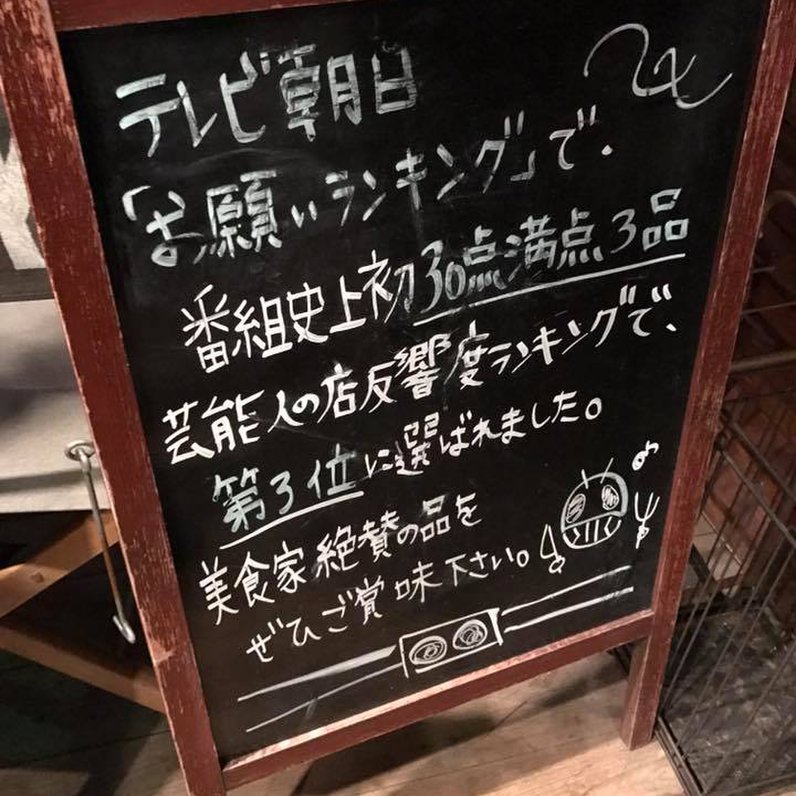 テレビ朝日
「お願いランキング」で、
番組史上初30点満点3品
芸能人の店反響度ランキングで、
第3位に選ばれました。
美食家絶賛の品を
ぜひご賞味下さい。